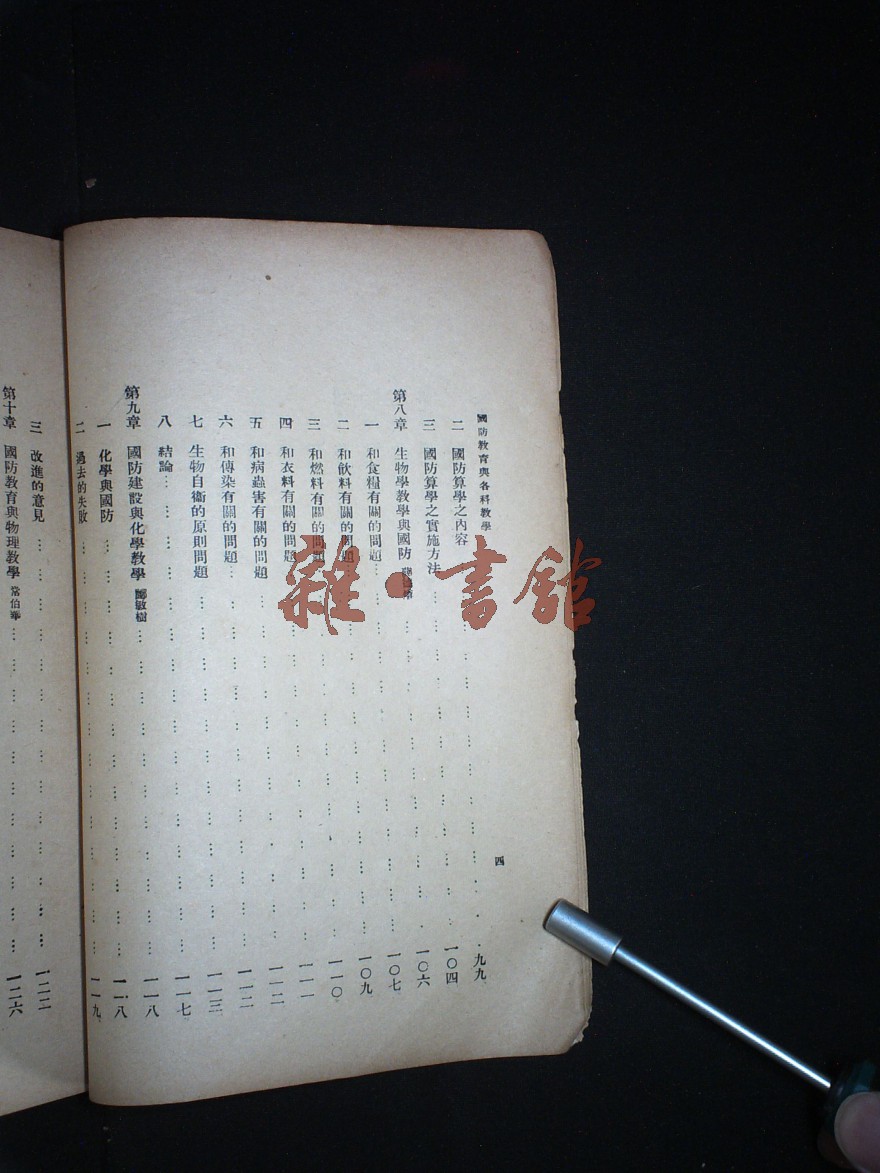 國防教育與各科教學 四
二 國防算學之內容 …… 九九
三 國防算學之實施方法 …… 一〇四
第八章 生物學教學與國防 …… 一〇六
一 和食糧有關的問題 …… 一〇七
二 和飲料有關的問題 …… 一〇九
三 和燃料有關的問題 …… 一一〇
四 和衣料有關的問題 …… 一一一
五 和病蟲害有關的問題 …… 一一二
六 和傳染有關的問題 …… 一一二
七 生物自衞的原則問題 …… 一一三
八 結論 …… 一一七
第九章 國防建設與化學教學 鄭敏樹 …… 一一八
一 化學與國防 …… 一一八
二 過去的失敗 …… 一一九
三 改進的意見 …… 一二二
第十章 國防教育與物理教學 常伯華 …… 一二六
雜·書館